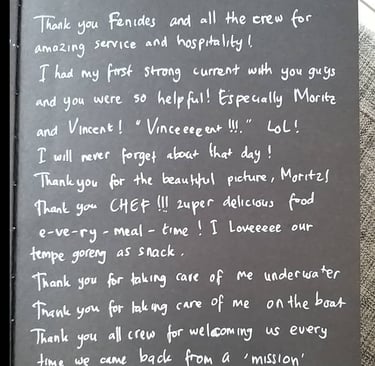 Thank you Fenides and all the crew for
amazing service and hospitality!
I had my first strong current with you guys
and you were so helpful! Especially Moritz
and Vincent! "Vinceeeeent !!!." LoL!
I will never forget about that day!
Thank you for the beautiful picture, Moritz!
Thank you CHEF !!! zuper delicious food
e-ve-ry-meal-time! I Loveeeee our
tempe goreng as snack.
Thank you for taking care of me underwater
Thank you for taking care of me on the boat
Thank you all crew for welcoming us every
time we came back from a 'mission'